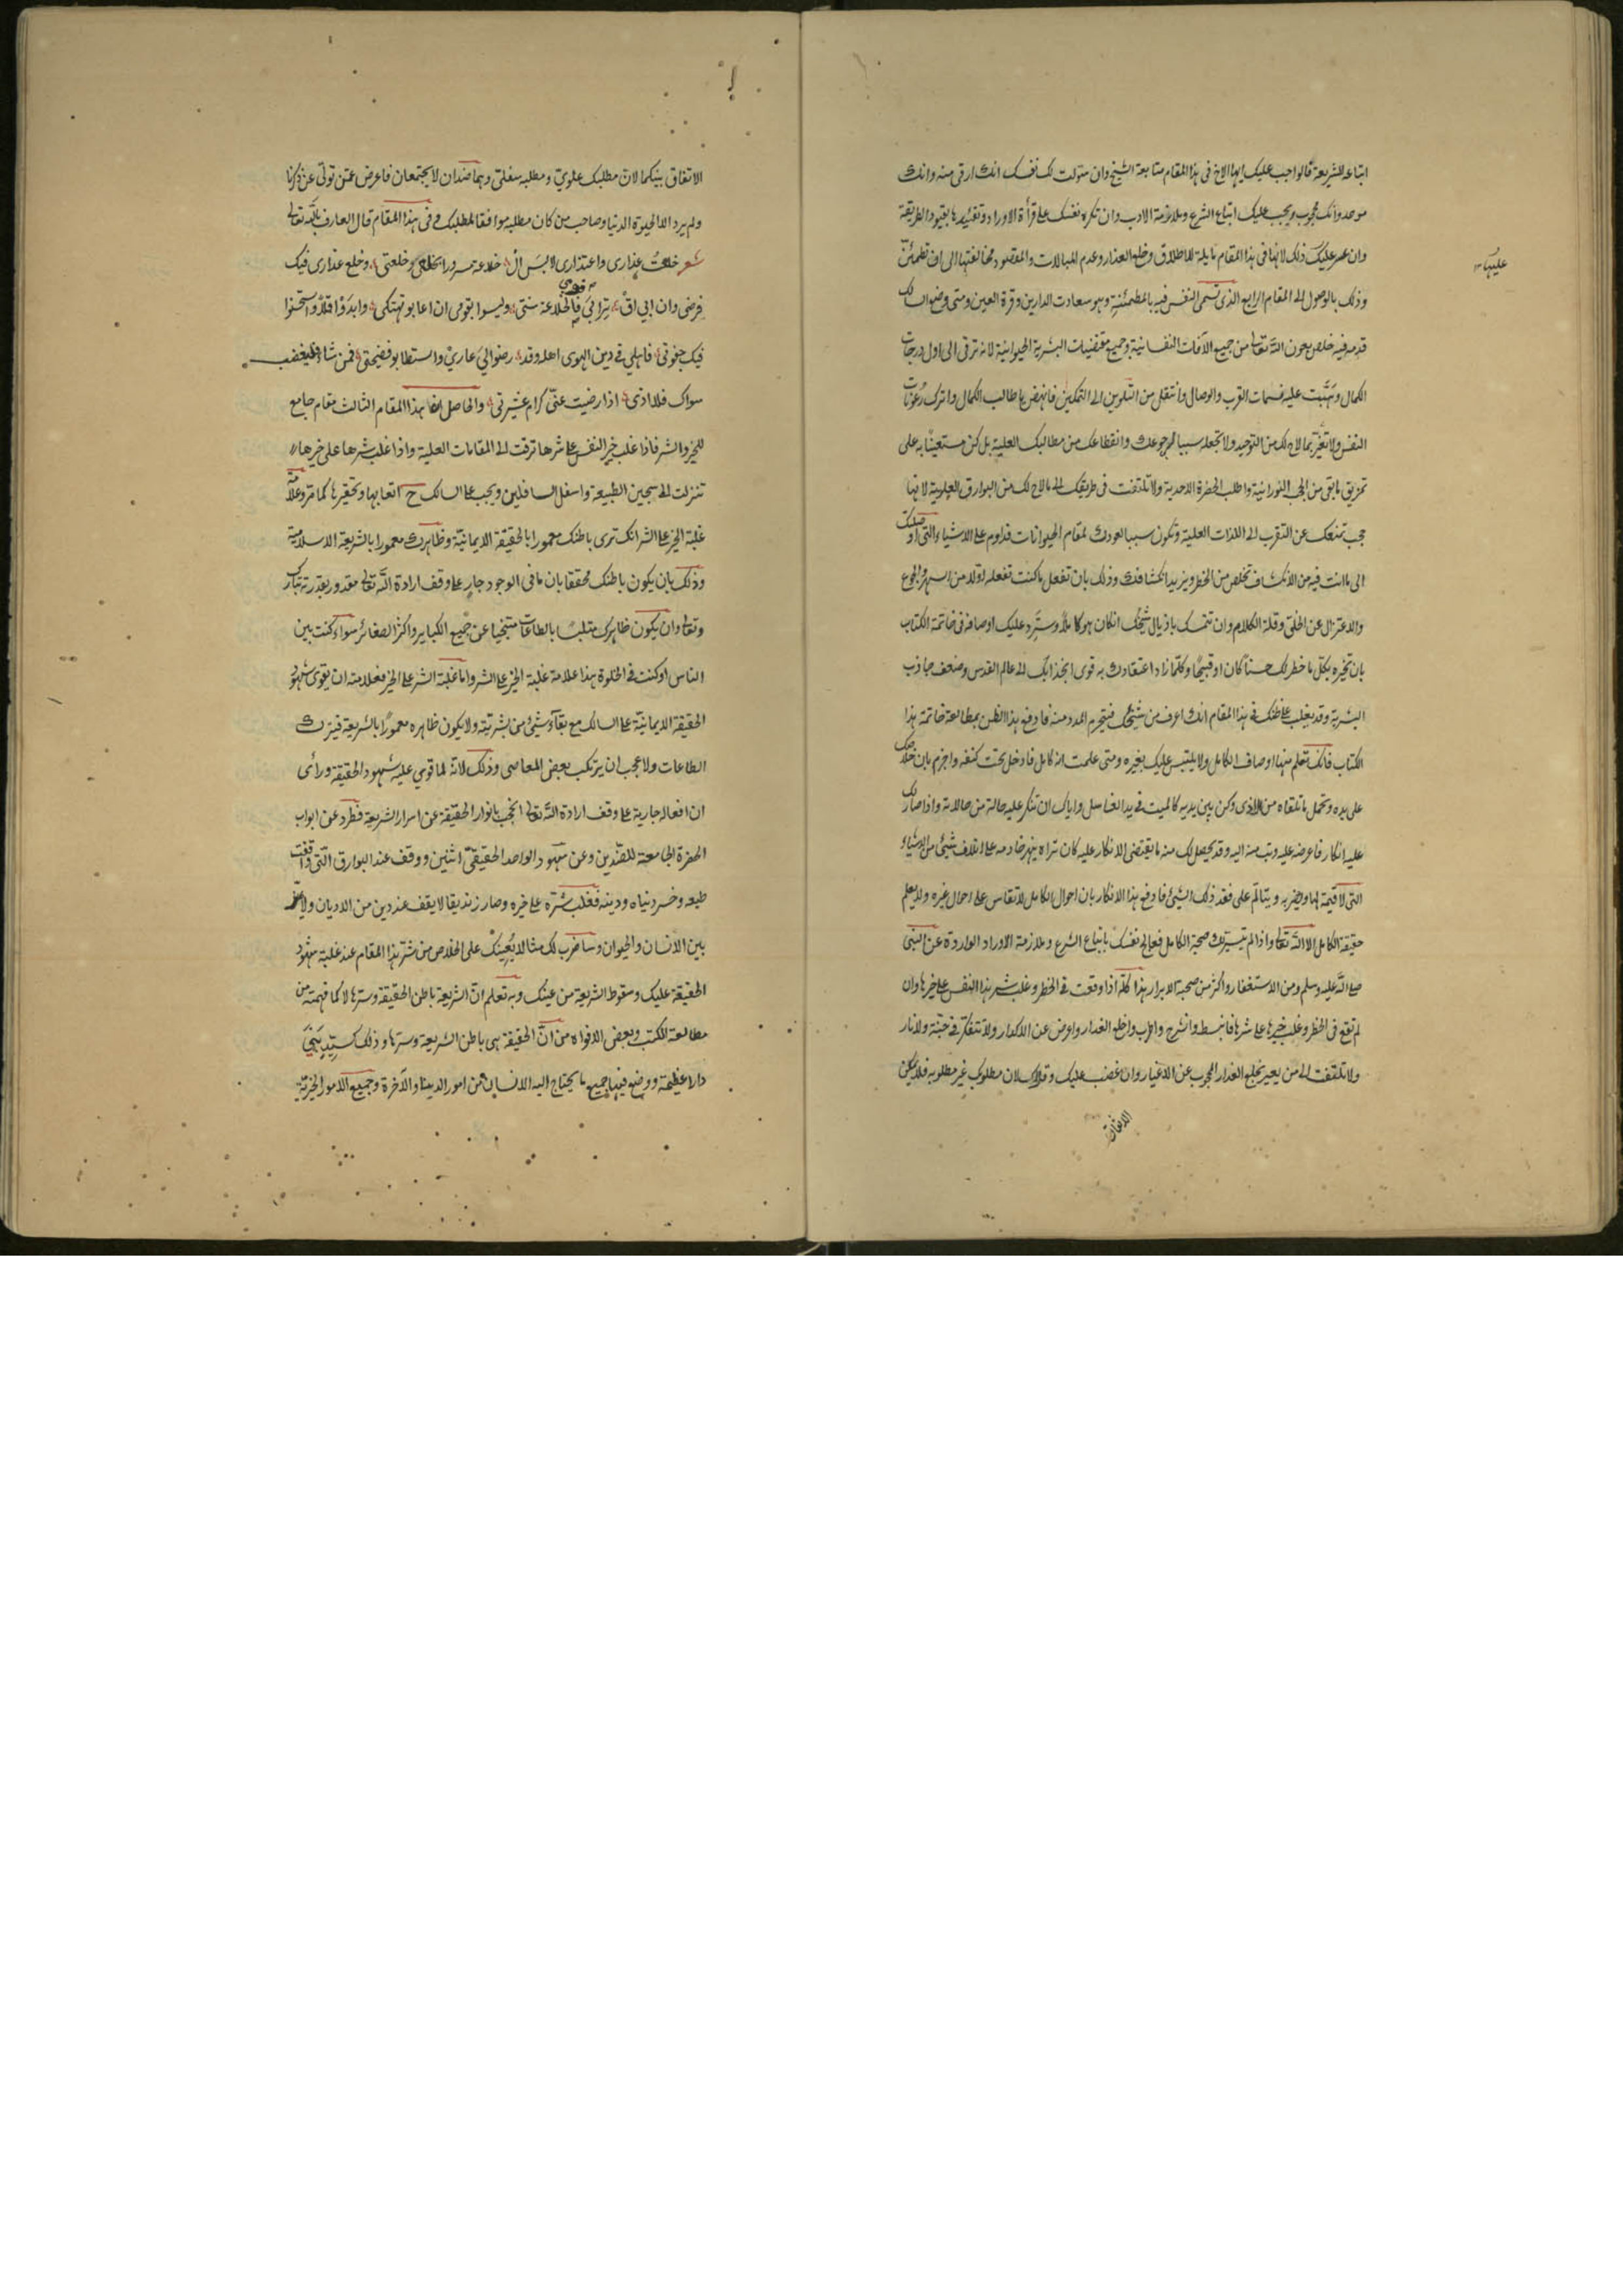 اتباعه للشريعة فالواجب عليك ايها الاخ فى هذا المقام متابعة الشيخ وان سولت لك نفسك انك ارقى منه وانك
موحد وانك محجوب ويجب عليك اتباع الشرع وملازمة الادب وان تكره نفسك على قرأة الاوراد وتقييدها بقيود الطريقة
وان عسر عليك ذلك لانها فى هذا المقام مايلة للاطلاق وخلع العذار وعدم المبالات والمقصود مخالفتها الى ان تطمئن
عليها
وذلك بالوصول الى المقام الرابع الذى تسمى النفس فيه بالمطمئنة وهو سعادت الدارين وقرة العين ومتى وضع السالك
قدمه فيه خلص بعون الله تعالى من جميع الآفات النفسانية وجميع مقتضيات البشرية الحيوانية لانه ترقى الى اول درجات
الكمال وهبّت عليه نسمات القرب والوصال وانتقل من التلوين الى التمكين فانهض يا طالب الكمال واترك رعونات
النفس ولا تغتر بما لاح لك من التوحيد ولا تجعله سببا لرجوعك وانقطاعك من مطالبك العلية بل كن مستعينا به على
تمزيق ما بقى من الحجب النورانية واطلب الحضرة الاحدية ولا تلتفت فى طريقك الى ما لاح لك من البوارق العلوية لانها
حجب تمنعك عن التقرب الى اللذات العلية وتكون سببا لعودك لمقام الحيوانات فداوم على الاشياء التى اوصلتك
الى ما انت فيه من الانكشاف تخلص من الخطر ويزيد انكشافك وذلك بان تفعل ما كنت تفعله اولا من السهر والجوع
والاعتزال عن الخلق وقلة الكلام وان تتمسك باذيال شيخك ان كان هو كاملا وسترد عليك اوصافه فى خاتمة الكتاب
بان تخبره بكل ما خطر لك حسنا كان او قبيحا وكلما زاد اعتقادك به قوى انجذابك الى عالم القدس وضعف جاذب
البشرية وقد يغلب على ظنك فى هذا المقام انك اعرف من شيخك فتحرم المدد منه فادفع هذا الظن بمطالعة خاتمة هذا
الكتاب فانك تعلم منها اوصاف الكامل ولا يلتبس عليك بغيره ومتى علمت انه كامل فادخل تحت كنفه واجزم بان خلاصك
على يده وتحمل ما تلقاه من الاذى وكن بين يديه كالميت فى يد الغاسل واياك ان تنكر عليه حالة من حالاته واذا صار لك
عليه انكار فاعرضه عليه وتب منه اليه وقد يحصل لك منه ما يقتضى الانكار عليه كان تراه ينهر خادمه على اتلاف شيئ من الاشياء
التى لا قيمة لها او يضربه ويتالم على فقد ذلك الشيئ فادفع هذا الانكار بان احوال الكامل لا تقاس على احوال غيره ولا يعلم
حقيقة الكامل الا الله تعالى واذا لم تتيسر لك صحبة الكامل فعالج نفسك باتباع الشرع وملازمة الاوراد الواردة عن النبى
صلى الله عليه وسلم ومن الاستغفار واكثر من صحبة الابرار هذا كله اذا وقعت فى الخطر وغلب شر هذا النفس على خيرها وان
لم تقع فى الخطر وغلب خيرها على شرها فانبسط وانشرح واطرب واخلع العذار واعرض عن الاكدار ولا تتفكر فى جنة ولا نار
ولا تلتفت الى من يعير بخلع العذار المحجوب عن الاغيار وان غضب عليك وقلاك لان مطلوبك غير مطلوبه فلا يمكن
الاتفاق
الاتفاق بينكما لان مطلبك علوي ومطلبه سفلى وهما ضدان لا يجتمعان فاعرض عمن تولى عن ذكرنا
ولم يرد الا الحيوة الدنيا وصاحب من كان مطلبه موافقا لمطلبك وفى هذا المقام قال العارف بالله تعالى
شعر خلعتُ عذارى واعتذارى لابس ال خلاعة مسرورا بخلعى وخلعتى وخلع عذارى فيك
فرضى وان ابي اق ترابي قومي فالخلاعة سنتى وليسوا بقومى ان اعابو تهتكى وابدوا قلاً واستحسنوا
فيك جفوتى فاهلي فى دين الهوى اهله وقد رضوا لي عاري واستطابو فضيحتى فمن شاء فليغضب
سواك فلا اذى اذا رضيت عنى كرام عشيرتى والحاصل ان هذا المقام الثالث مقام جامع
للخير والشر فاذا غلب خير النفس على شرها ترقت الى المقامات العلية واذا غلب شرها على خيرها
تنزلت الى سجين الطبيعة واسفل السافلين ويجب على السالك ح اتعابها وتحقيرها كما مر وعلامة
غلبة الخير على الشر انك ترى باطنك معمورا بالحقيقة الايمانية وظاهرك معمورا بالشريعة الاسلامية
وذلك بان يكون باطنك محققا بان ما فى الوجود جار على وقف ارادة الله تعالى مقدور بقدرته تبارك
وتعالى وان يكون ظاهرك متلبسا بالطاعات متنحيا عن جميع الكباير واكثر الصغائر سواء كنت بين
الناس او كنت فى الخلوة هذا علامة غلبة الخير على الشر واما غلبة الشر على الخير فعلامته ان يقوى شهود
الحقيقة الايمانية على السالك مع بقاء شيئ من بشريته ولا يكون ظاهره معمورا بالشريعة فيترك
الطاعات ولا عجب ان يرتكب بعض المعاصى وذلك لانه لما قوي عليه شهود الحقيقة ورأى
ان افعاله جارية على وقف ارادة الله تعالى انحجب بانوار الحقيقة عن اسرار الشريعة فطرد عن ابواب
الحضرة الجامعة للضدين وعن شهود الواحد الحقيقى اثنين ووقف عند البوارق التى وافقت
طبعه وخسر دنياه ودينه فغلب شره على خيره وصار زنديقا لا يقف عند دين من الاديان ولا يفرق
بين الانسان والحيوان وساضرب لك مثالا يُعينك على الخلاص من شر هذا المقام عند غلبة شهود
الحقيقة عليك وسقوط الشريعة من عينك وبه تعلم ان الشريعة باطن الحقيقة وسرها لا كما فهمته من
مطالعة الكتب وبعض الافواه من انّ الحقيقة هى باطن الشريعة وسرها وذلك كسيّدٍ بنىَ
دارا عظيمة ووضع فيها جميع ما يحتاج اليه الانسان من امور الدينا والآخرة وجميع الامور الجزئية